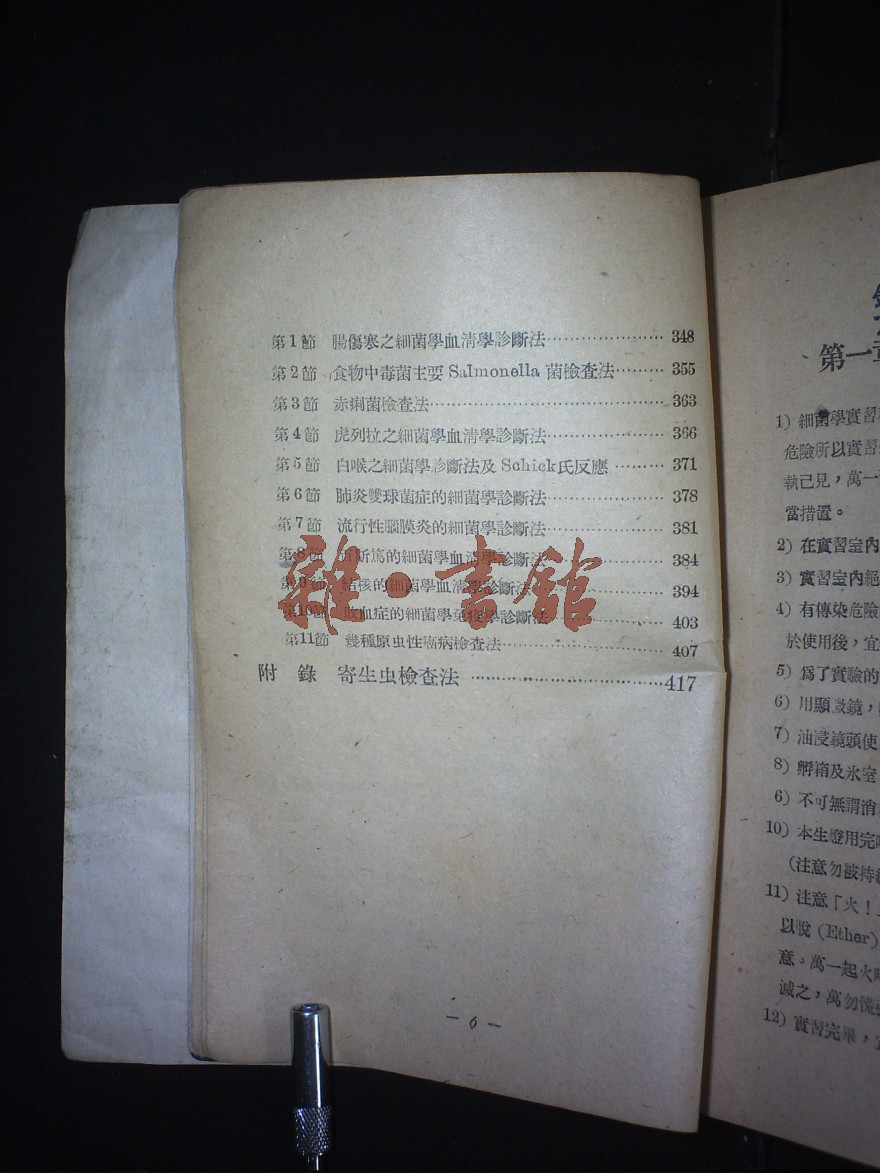 第1節 腸傷寒之細菌學血清學診斷法………………… 348
第2節 食物中毒菌主要Salmonella菌檢查法……… 355
第3節 赤痢菌檢查法………………………………… 363
第4節 虎列拉之細菌學血清學診斷法……………… 366
第5節 白喉之細菌學診斷法及Schick氏反應……… 371
第6節 肺炎雙球菌症的細菌學診斷法……………… 378
第7節 流行性腦膜炎的細菌學診斷法……………… 381
第8節 斯篤的細菌學血清學診斷法……………… 384
第9節 結核的細菌學血清學診斷法………………… 394
第10節 敗血症的細菌學免疫學診斷法…………… 403
第11節 幾種原虫性病檢查法…………………… 407
附 錄 寄生虫檢查法 ……………………………417
雜·書舘
— 6 —
第一章
1) 細菌學實習
危險所以實習
執己見，萬一
當措置。
2) 在實習室內
3) 實習室內絕
4) 有傳染危險
於使用後，宜
5) 爲了實驗的
6) 用顯微鏡，
7) 油浸鏡頭使
8) 孵箱及氷室
6) 不可無謂消
10) 本生燈用完
（注意勿被持
11) 注意「火！
以脫 (Ether)
意。萬一起火
滅之，萬勿慌
12) 實習完畢，